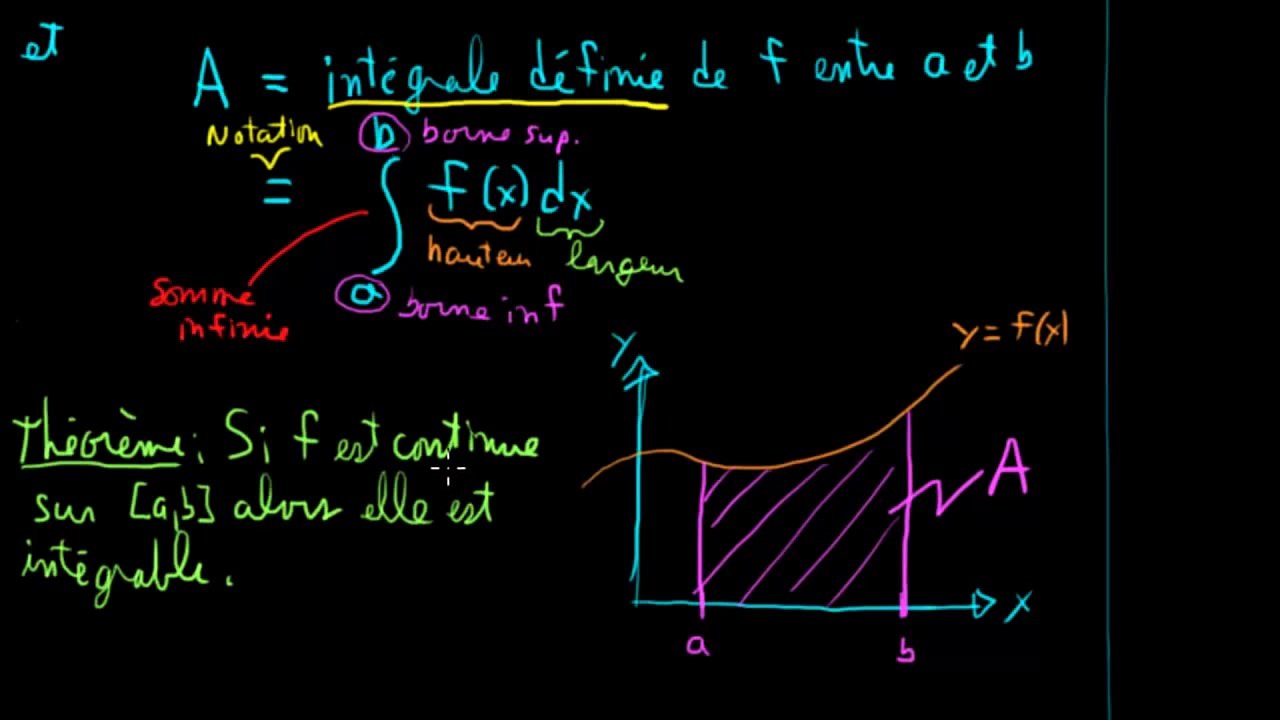 et
A = intégrale définie de f entre a et b
Notation
b borne sup.
= ∫ f(x) dx
hauteur largeur
a borne inf
Somme
infinie
y = f(x)
y
Théorème : Si f est continue
sur [a,b] alors elle est
intégrable.
A
x
a b